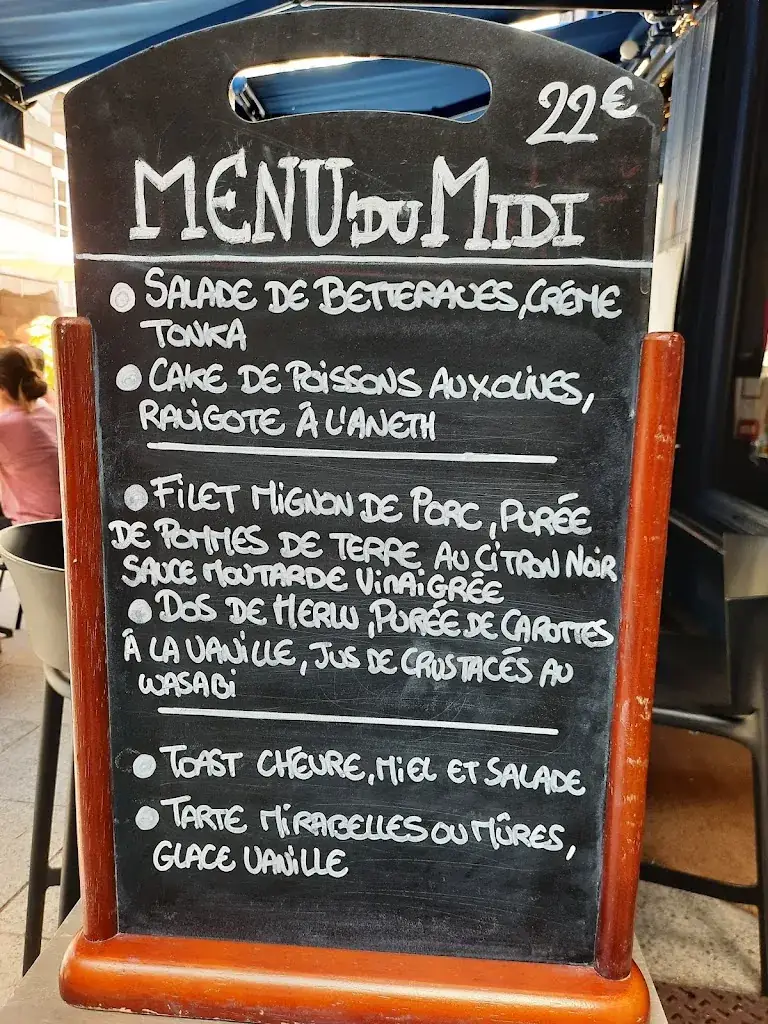 22€
MENU DU MIDI
• SALADE DE BETTERAVES, CRÉME
TONKA
• CAKE DE POISSONS AUX OLIVES,
RAVIGOTE À L'ANETH
• FILET MIGNON DE PORC, PURÉE
DE POMMES DE TERRE AU CITRON NOIR
SAUCE MOUTARDE VINAIGRÉE
• DOS DE MERLU, PURÉE DE CAROTTES
À LA VANILLE, JUS DE CRUSTACÉS AU
WASABI
• TOAST CHÈVRE, MIEL ET SALADE
• TARTE MIRABELLES OU MÛRES,
GLACE VANILLE